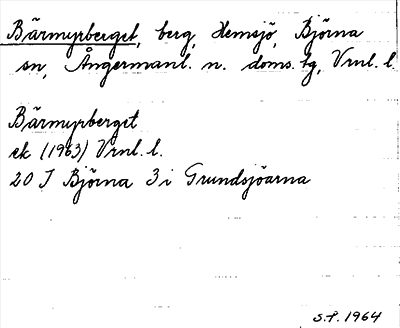 Bärmyrberget, berg, Hemsjö, Björna
sn, Ångermanl. n. doms.tg, Vrnl. l.
Bärmyrberget
ek (1963) Vrnl. l.
20 J Björna 3 i Grundsjöarna
S.P. 1964